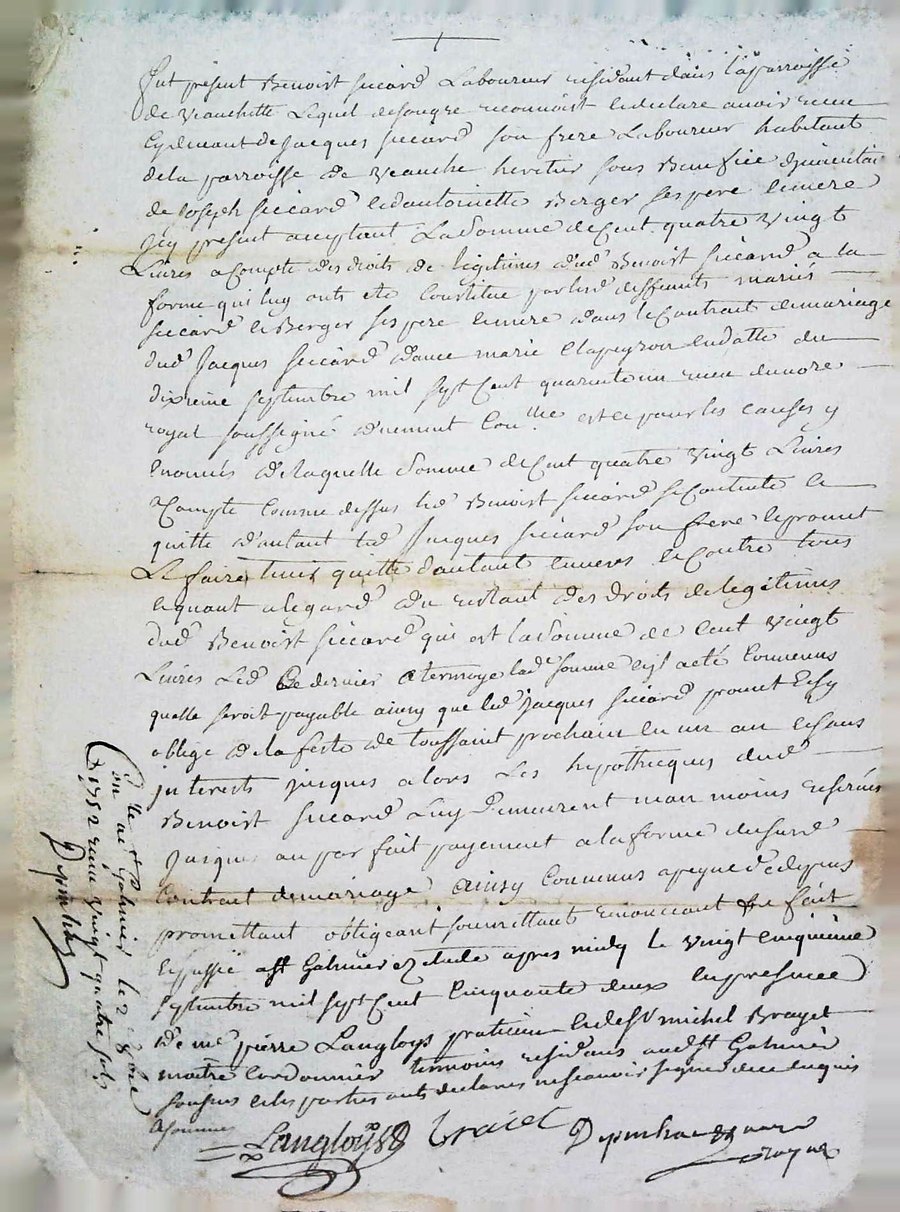 fut présent Benoist siccard Laboureur résidant dans laparroisse
de veauchette Lequel desongre reconnoist et declare avoir receu
cydevant de Jacques siccard son frere Laboureur habitant
dela parroisse de veauche heritier sous Benefice dinventai
de Joseph siccard et dantoinette Berger ses pere et mere
icy present acceptant La somme de Cent quatre vingt
Livres acompte des droits de legitimes dud Benoist siccard a la
forme qui luy onts été Constitue par lesd deffunts mariés
siccard et Berger ses pere et mere dans le Contrait de mariage
dud Jacques siccard davec marie Clapeyron en datte du
dixieme septembre mil sept Cent quarente un receu du nore
royal soussigné duement Con.lle est ce pour les causes y
enoncés de laquelle somme de Cent quatre vingt Livres
acompte comme dessus led Benoist siccard se Contente et
quitte d'autant led Jacques siccard son frere et promet
Le faire tenir quitte d'autant envers et Contre tous
et quant a legard du restant des droits de legitimes
dud Benoist siccard qui est la somme de Cent vingt
Livres Led Ce dernier atermoye lad somme et il a eté Convenus
quelle seroit payable ainsy que led Jacques siccard promet et sy
oblige de la feste de toussaint prochain en un an et sans
interests jusques alors Les hypothecques dud
Benoist siccard Luy Demeurent néan moins reservés
jusques au parfait payement a la forme du susd
Contrait de mariage Ainsy Convenus a peyne de depens
promettant obligeant soumettant renonceant &c fait
et passé a st Galmier ez etude apres midy le vingt cinquieme
septembre mil sept Cent Cinquante deux en presence
de me pierre Langloys praticien et de sr michel Brayet
maitre Cordonnier temoins residans aud st Galmier
sousnes et les parties onts declarés ne scavoir signer de ce enquis
et sommés
Langloys Braiet nore
royal
Con.lle a st Galmier le 2 8bre
1752 receu vingt quatre sols